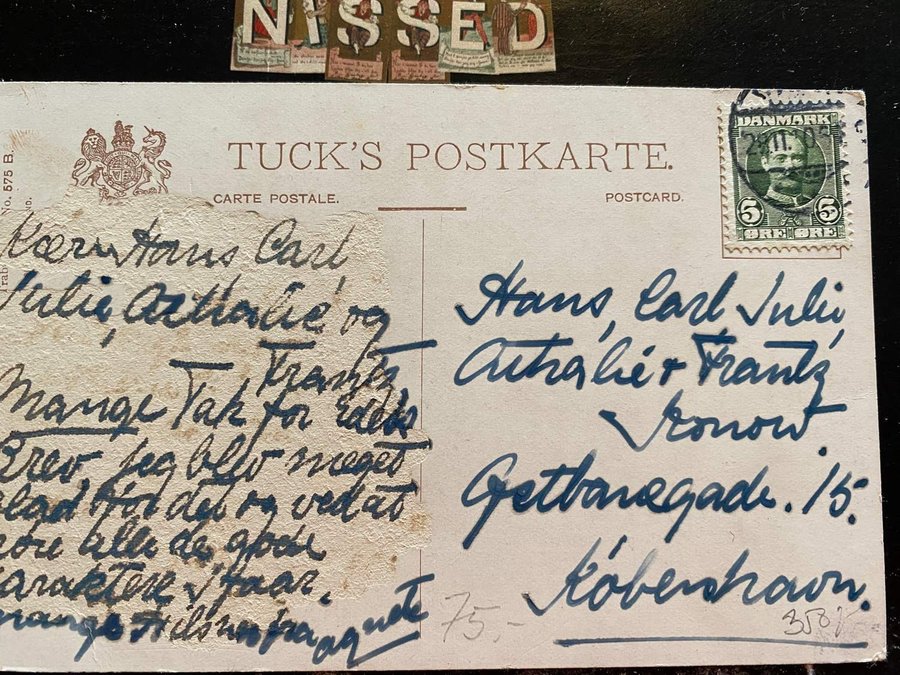 NISSED
TUCK'S POSTKARTE.
CARTE POSTALE.
POSTCARD.
No. 575 B.
DANMARK
5 5
ØRE ØRE
Kære Hans Carl
Julie, Acthalie og
Frantz
Mange Tak for Eders
Brev, jeg blev meget
glad for det og ved at
høre alle de gode
Karakterer I faar.
mange Hilsner fra Agnete
Hans, Carl Julie,
Acthalie + Frantz
Konow
Østbanegade. 15.
København.
75.-
350